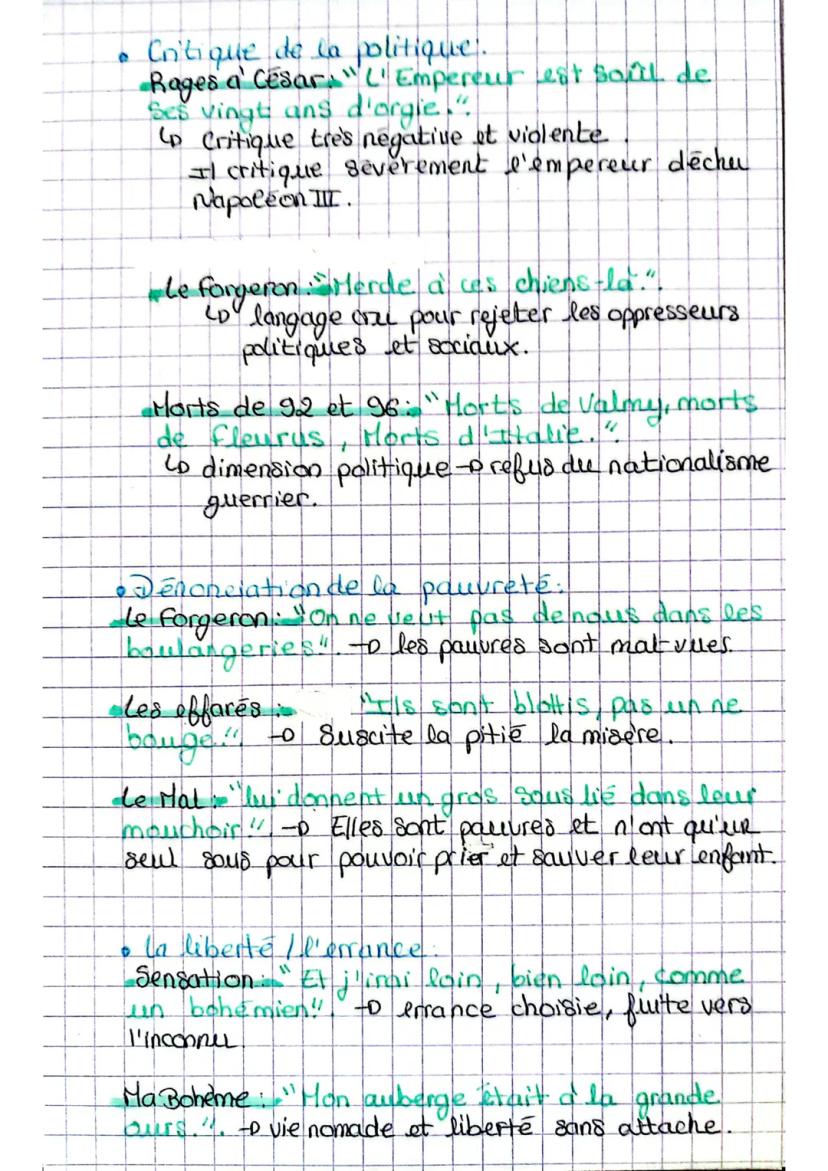 • Critique de la politique:
Rages d' César: "L'Empereur est soûl de
ses vingt ans d'orgie.".
↳ critique très négative et violente.
Il critique sévèrement l'empereur déchu
Napoléon III.
Le Forgeron: "Merde à ces chiens-là.".
↳ langage cru pour rejeter les oppresseurs
politiques et sociaux.
Morts de 92 et 96: "Morts de Valmy, morts
de Fleurus, Morts d'Italie.".
↳ dimension politique → refus du nationalisme
guerrier.
• Dénonciation de la pauvreté:
Le Forgeron: "On ne veut pas de nous dans les
boulangeries". → les pauvres sont mal-vues.
Les effarés: "Ils sont blottis, pas un ne
bouge". → Suscite la pitié la misère.
Le Mal: "lui donnent un gros sous lié dans leur
mouchoir!". → Elles sont pauvres et n'ont qu'un
seul sous pour pouvoir prier et sauver leur enfant.
• La liberté / l'errance:
Sensation: "Et j'irai loin, bien loin, comme
un bohémien". → errance choisie, fuite vers
l'inconnu
Ma Bohème: "Mon auberge était à la grande
ours.". → vie nomade et liberté sans attache.